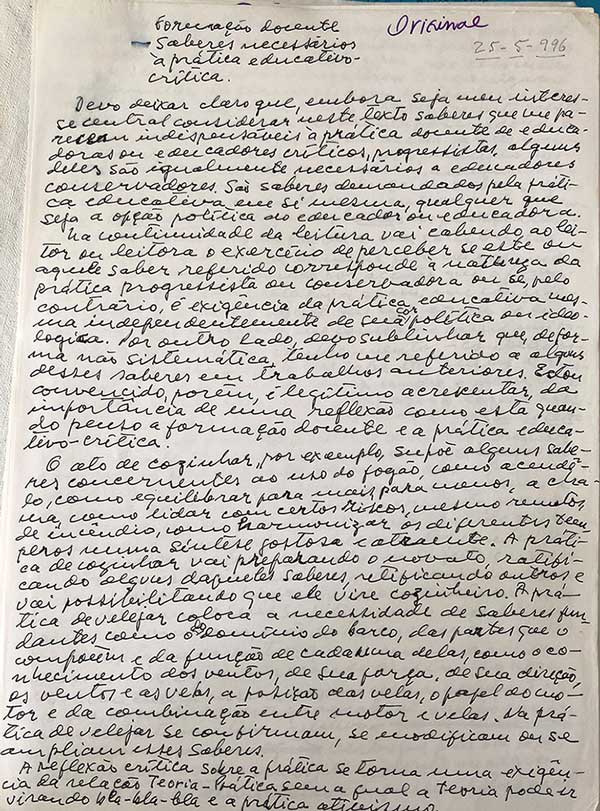 Formação docente
Saberes necessários
à prática educativo-
crítica.
Original
25-5-996
Devo deixar claro que, embora seja meu interes-
se central considerar neste texto saberes que me pa-
recem indispensáveis à prática docente de educa-
doras ou educadores críticos, progressistas, alguns
deles são igualmente necessários a educadores
conservadores. São saberes demandados pela práti-
ca educativa em si mesma, qualquer que
seja a opção política do educador ou educadora.
Na continuidade da leitura vai cabendo ao lei-
tor ou leitora o exercício de perceber se este ou
aquele saber referido corresponde à natureza da
prática progressista ou conservadora ou se, pelo
contrário, é exigência da prática educativa mes-
ma independentemente de sua cor política ou ideo-
logica. Por outro lado, devo sublinhar que, de for-
ma não sistemática, tenho me referido a alguns
desses saberes em trabalhos anteriores. Estou
convencido, porém, é legítimo acrescentar, da
importância de uma reflexão como esta quan-
do penso a formação docente e a prática educa-
tivo-crítica.
O ato de cozinhar, por exemplo, supõe alguns sabe-
res concernentes ao uso do fogão, como acendê-
lo, como equilibrar para mais, para menos, a cha-
ma, como lidar com certos riscos, mesmo remotos
de incêndio, como harmonizar os diferentes tem
peros numa síntese gostosa e atraente. A práti-
ca de cozinhar vai preparando o novato, ratifi-
cando alguns daqueles saberes, retificando outros e
vai possibilitando que ele vire cozinheiro. A prá-
tica de velejar coloca a necessidade de saberes fun
dantes como o do domínio do barco, das partes que o
compõem e da função de cada uma delas, como o co-
nhecimento dos ventos, de sua força, de sua direção,
os ventos e as velas, a posição das velas, o papel do mo-
tor e da combinação entre motor e velas. Na prá-
tica de velejar se confirmam, se modificam ou se
ampliam esses saberes.
A reflexão crítica sobre a prática se torna uma exigên-
cia da relação Teoria-Prática sem a qual a teoria pode ir
virando bla-bla-bla e a prática ativismo.